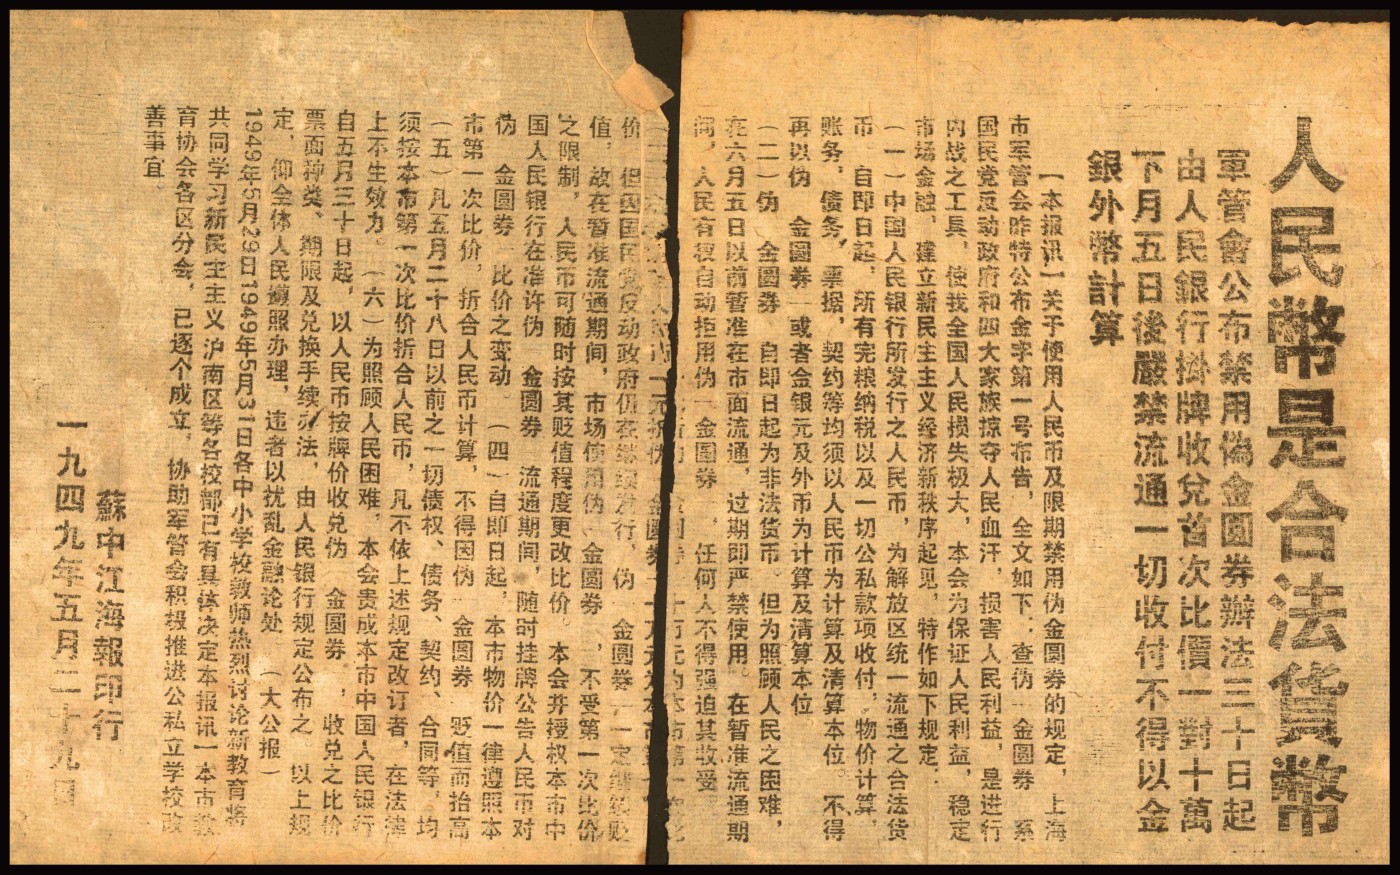 人民幣是合法貨幣
軍管會公布禁用偽金圓券辦法三十日起
由人民銀行掛牌收兌首次比價一對十萬
下月五日後嚴禁流通一切收付不得以金
銀外幣計算
【本报讯】关于使用人民币及限期禁用伪金圆券的规定，上海
市军管会昨特公布金字第一号布告，全文如下：查伪 金圆券 系
国民党反动政府和四大家族掠夺人民血汗，损害人民利益，是进行
内战之工具，使我全国人民损失极大，本会为保证人民利益，稳定
市场金融，建立新民主主义经济新秩序起见，特作如下规定：
（一）中国人民银行所发行之人民币，为解放区统一流通之合法货
币。自即日起，所有完粮纳税以及一切公私款项收付，物价计算，
账务，债务，票据，契约等均须以人民币为计算及清算本位。不得
再以伪 金圆券 或者金银元及外币为计算及清算本位
（二）伪 金圆券 自即日起为非法货币。但为照顾人民之困难，
在六月五日以前暂准在市面流通，过期即严禁使用。在暂准流通期
间，人民有权自动拒用伪 金圆券 ，任何人不得强迫其收受。
价 但因国民党反动政府仍在继续发行，伪 金圆券 一定继续贬
值，故在暂准流通期间，市场使用伪 金圆券 ，不受第一次比价
之限制，人民币可随时按其贬值程度更改比价。本会并授权本市中
国人民银行在准许伪 金圆券 流通期间，随时挂牌公告人民币对
伪 金圆券 比价之变动。（四）自即日起，本市物价一律遵照本
市第一次比价，折合人民币计算，不得因伪 金圆券 贬值而抬高
（五）凡五月二十八日以前之一切债权、债务、契约、合同等，均
须按本市第一次比价折合人民币，凡不依上述规定改订者，在法律
上不生效力。（六）为照顾人民困难，本会责成本市中国人民银行
自五月三十日起，以人民币按牌价收兑伪 金圆券 ，收兑之比价
票面种类、期限及兑换手续办法，由人民银行规定公布之。以上规
定，仰全体人民遵照办理，违者以扰乱金融论处 （大公报）
1949年5月29日1949年5月31日各中小学校教师热烈讨论新教育将
共同学习新民主主义沪南区等各校部已有具体决定本报讯一本市教
育协会各区分会，已逐个成立，协助军管会积极推进公私立学校改
善事宜
蘇中江海報印行
一九四九年五月二十九日